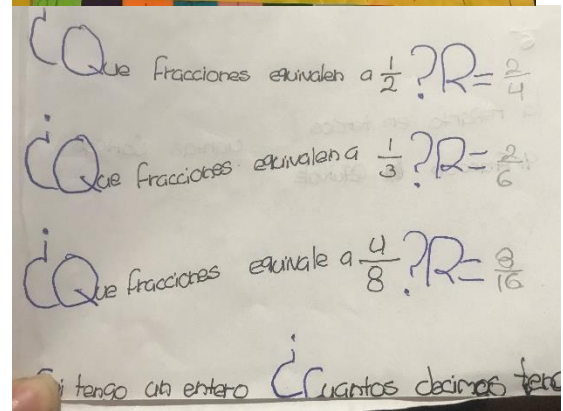 ¿Que fracciones equivalen a 1/2? R= 2/4
¿Que fracciones equivalen a 1/3? R= 2/6
¿Que fracciones equivale a 4/8? R= 8/16
Si tengo un entero ¿Cuantos decimos